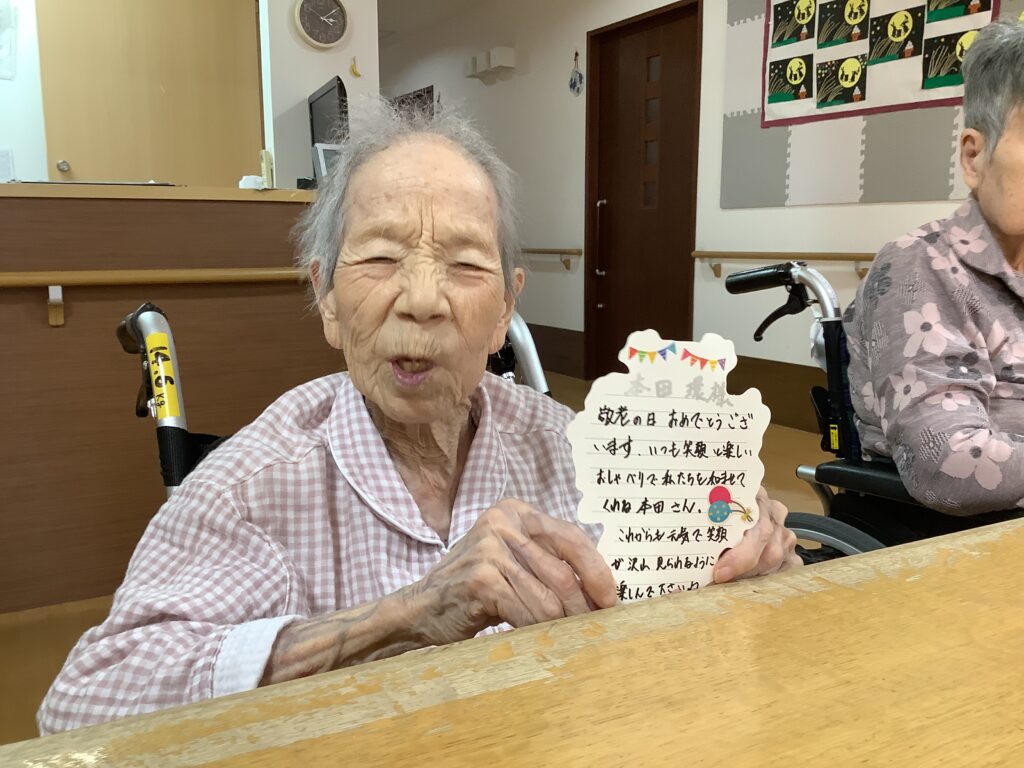 14.6
kg
本田 環様
敬老の日 おめでとうござ
います、いつも笑顔と楽しい
おしゃべりで私たちを和ませて
くれる本田さん。
これからも元気で笑顔
が沢山見られるように
楽しんで下さいね